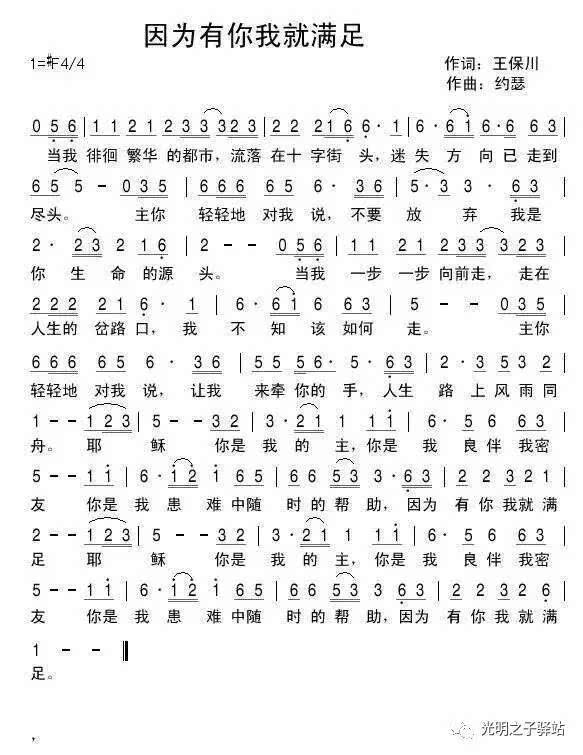 因为有你我就满足
1=#F4/4
作词：王保川
作曲：约瑟
0 5 6 | 1 1 2 1 2 3 3 3 2 3 3 | 2 2 2 1 6 6 · 1 | 6 · 6 1 6 · 6 6 3 |
当我 徘徊 繁华 的都市，流落 在十 字街 头，迷 失 方 向 已 走到
6 5 5 - 0 3 5 | 6 6 6 6 5 6 · 3 6 | 5 · 3 3 · 6 3 |
尽头。 主你 轻轻地 对我 说，不要 放 弃 我是
2 · 2 3 2 1 6 | 2 - - 0 5 6 | 1 1 2 1 2 3 3 3 2 3 |
你 生 命 的源 头。 当我 一步 一步 向前走，走在
2 2 2 2 1 6 · 1 | 6 · 6 1 6 6 3 | 5 - - 0 3 5 |
人生的 岔路 口， 我 不 知 该 如何 走。 主你
6 6 6 6 5 6 · 3 6 | 5 5 5 6 · 5 · 6 3 | 2 · 3 5 3 2 |
轻轻地 对我 说，让我 来牵 你的 手，人生 路 上 风 雨 同
1 - - 1 2 3 | 5 - - 3 2 | 3 · 2 1 1 1 1 | 6 · 5 5 6 6 3 |
舟。 耶 稣 你是 我 的 主，你是 我 良 伴 我密
5 - - 1 1 | 6 · 1 2 1 6 5 | 6 6 5 3 · 6 3 | 2 2 3 2 1 |
友 你是 我 患 难 中随 时 的 帮 助，因为 有 你我 就 满
2 - - 1 2 3 | 5 - - 3 2 | 3 · 2 1 1 1 1 | 6 · 5 5 6 6 3 |
足 耶 稣 你是 我 的 主，你是 我 良 伴 我密
5 - - 1 1 | 6 · 1 2 1 6 5 | 6 6 5 3 · 6 3 | 2 2 3 2 1 |
友 你是 我 患 难 中随 时 的 帮 助，因为 有 你 我 就 满
1 - -
足。
，
光明之子驿站